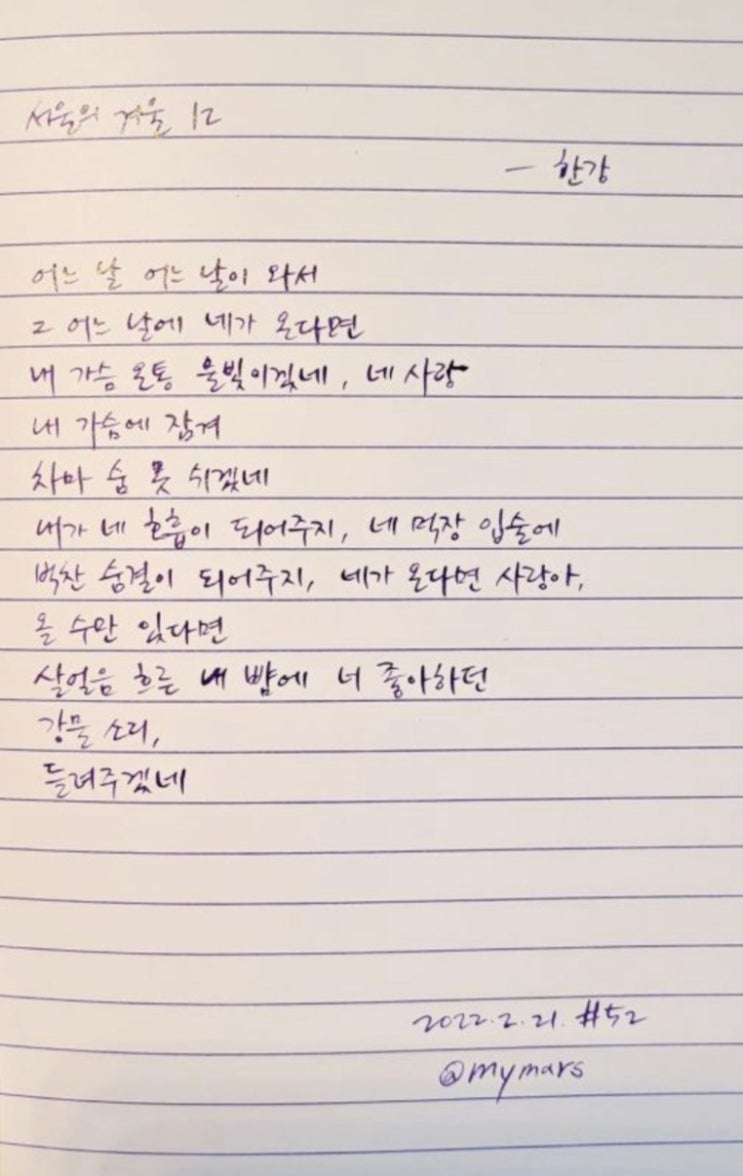 서울의 겨울 12
- 한강
어느 날 어느 날이 와서
그 어느 날에 네가 온다면
내 가슴 온통 물빛이겠네, 네 사랑
내 가슴에 잠겨
차마 숨 못 쉬겠네
내가 네 호흡이 되어주지, 네 먹장 입술에
벅찬 숨결이 되어주지, 네가 온다면 사랑아,
올 수만 있다면
살얼음 흐른 내 뺨에 너 좋아하던
강물 소리,
들려주겠네
2022.2.21. #52
@mymars